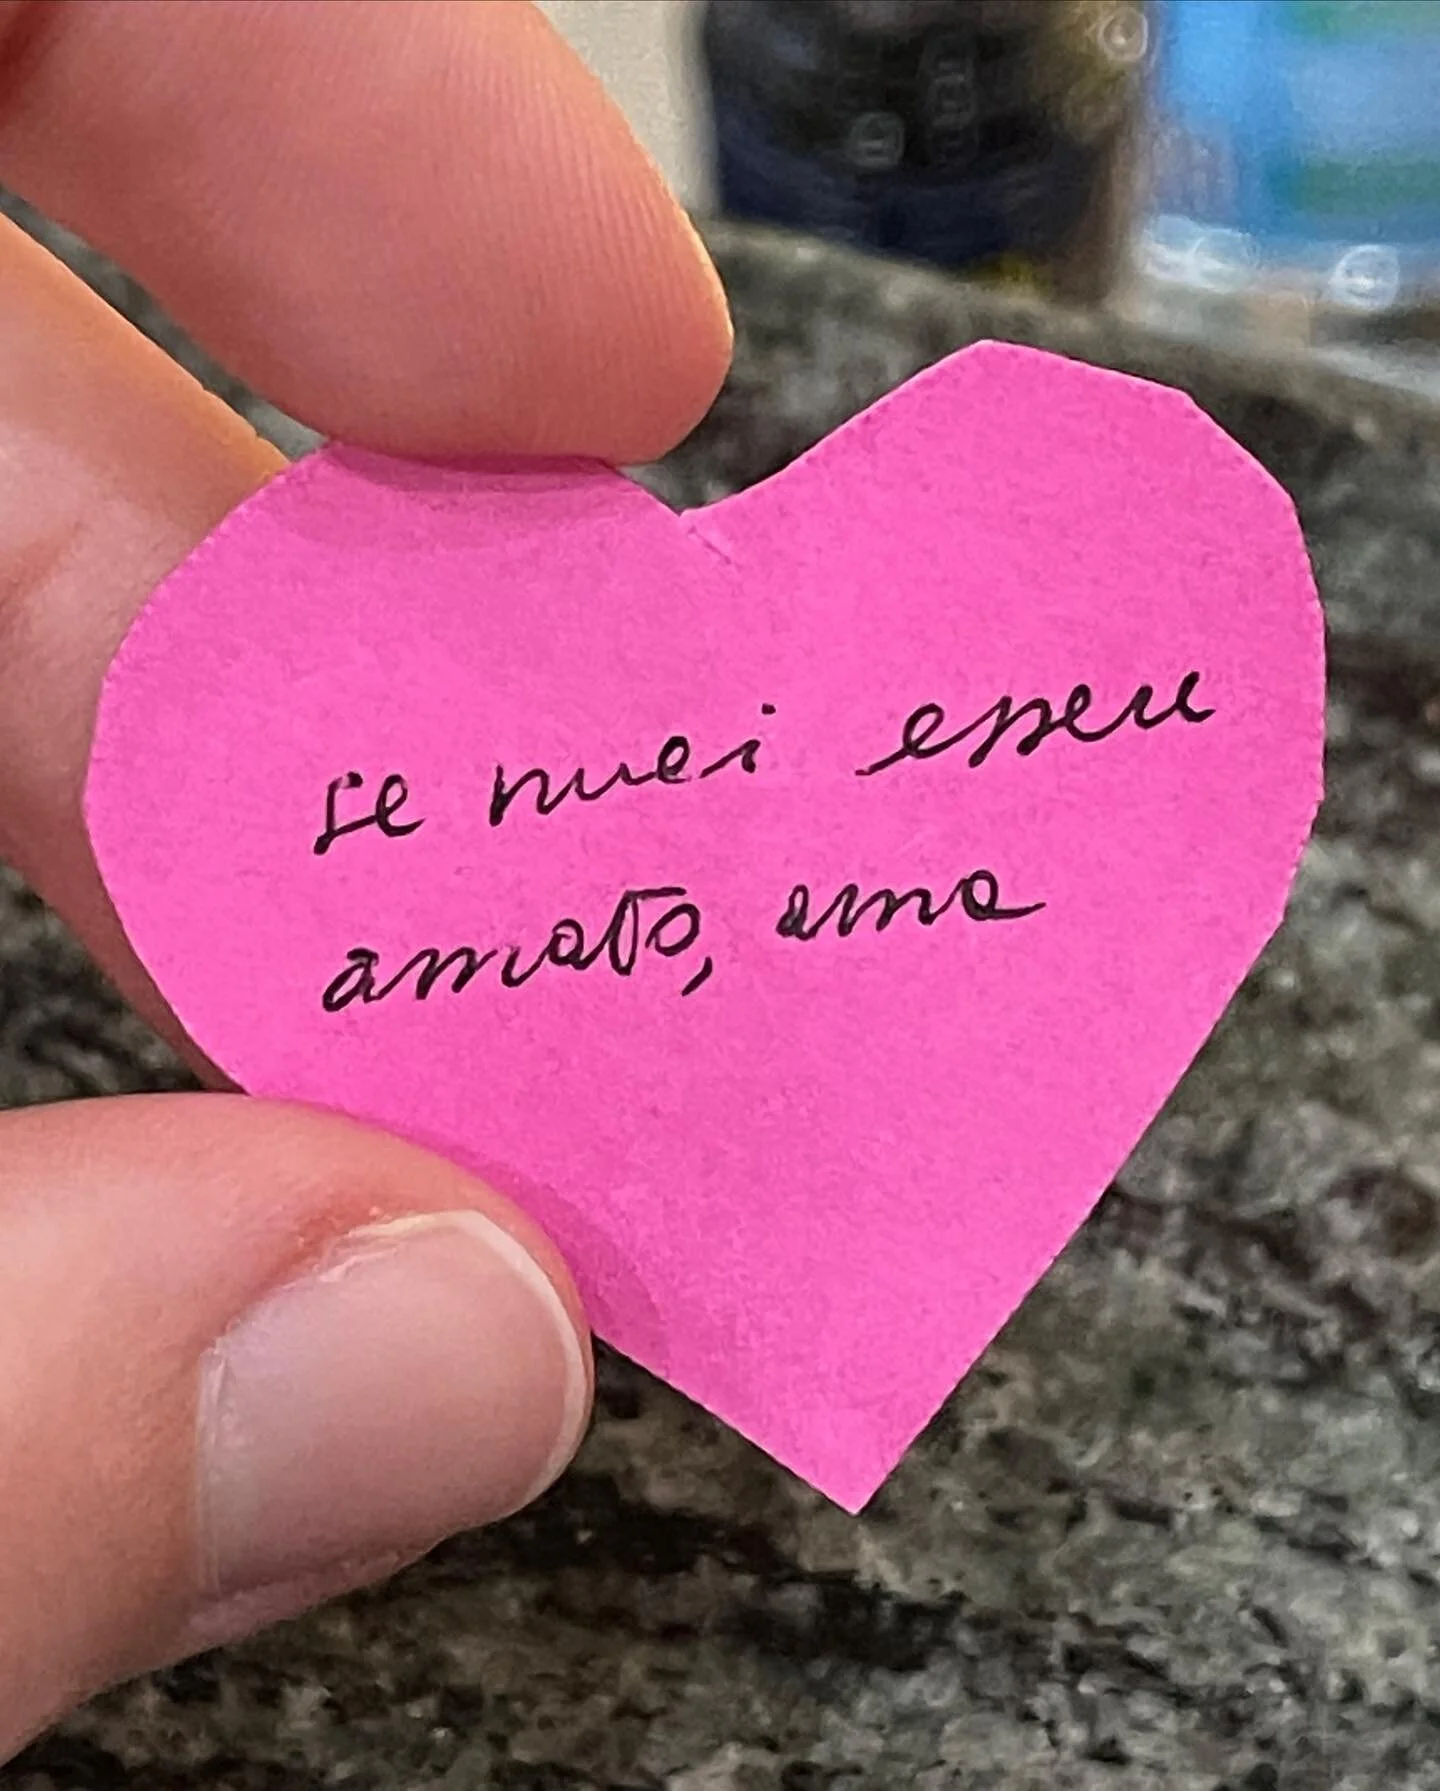 se vuoi essere
amato, ama